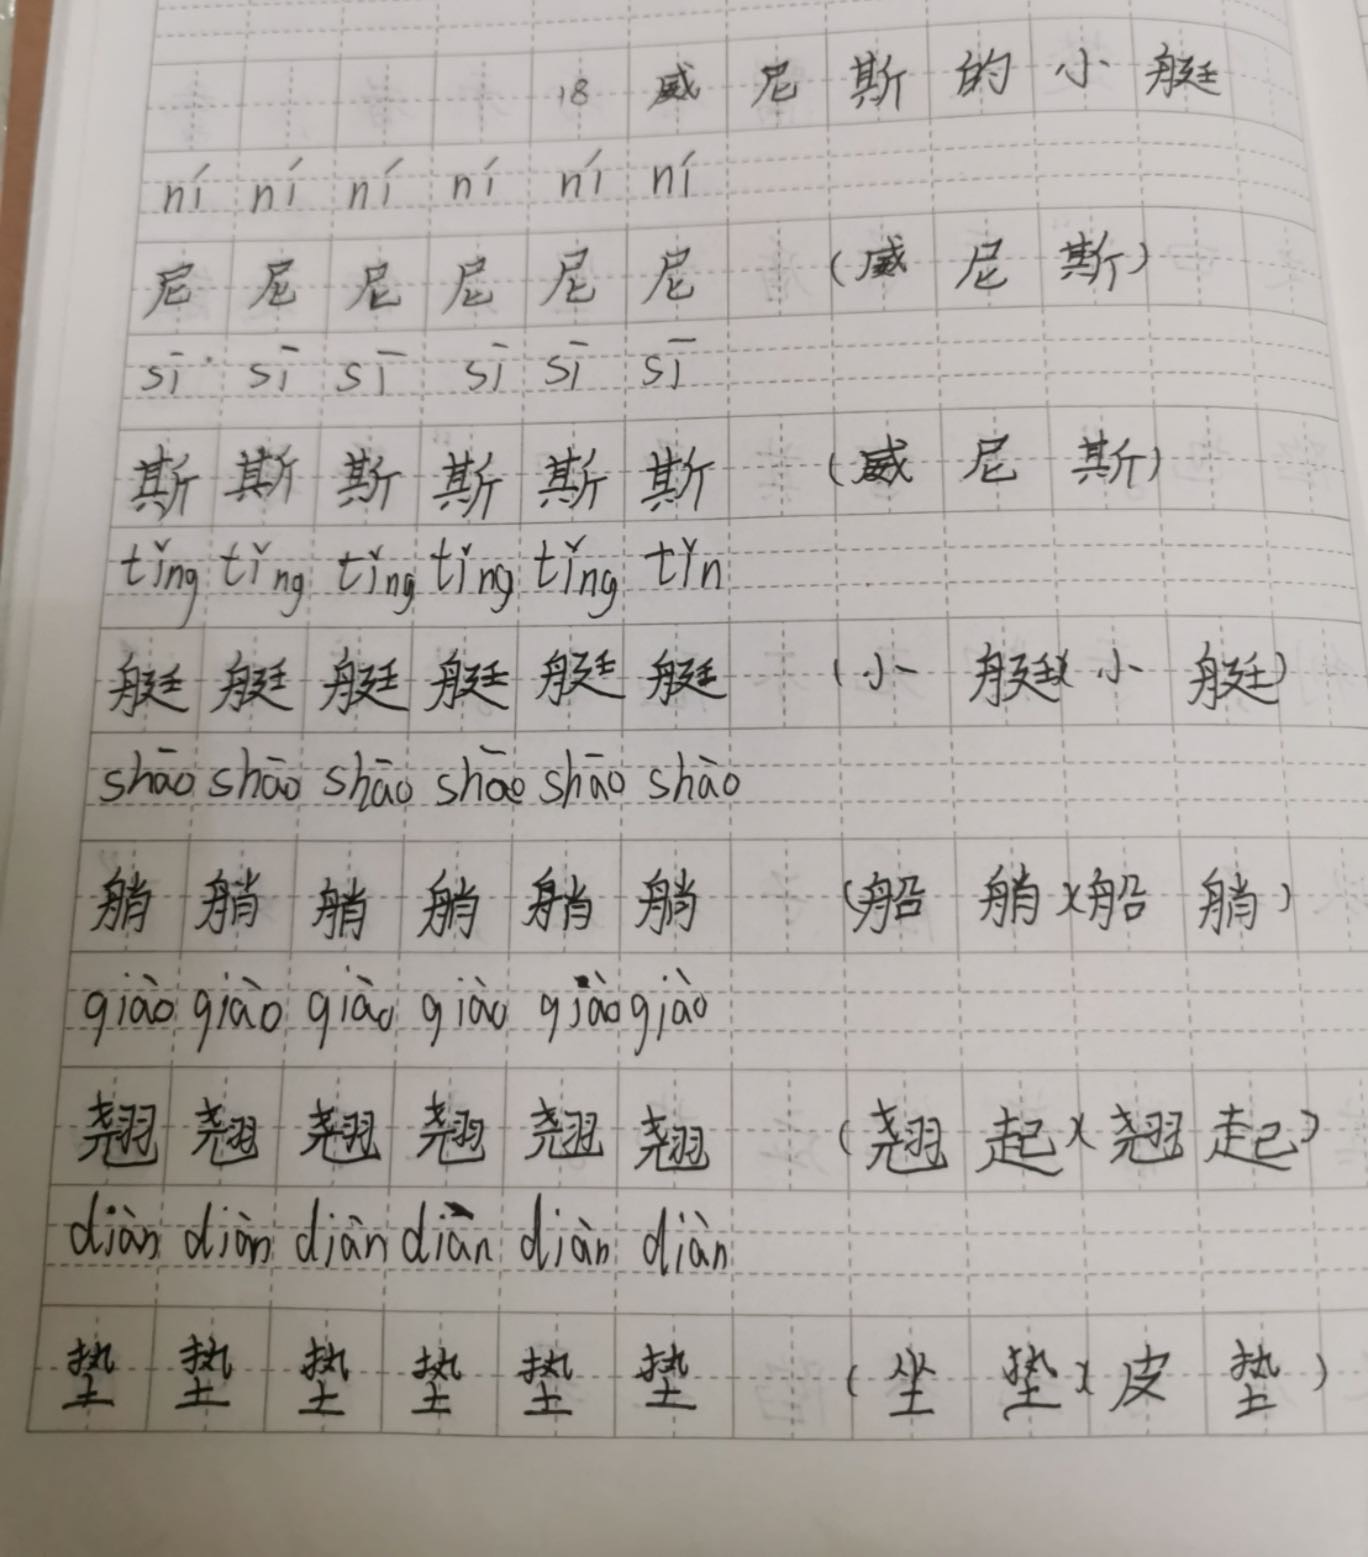 18 威尼斯的小艇
ní ní ní ní ní ní
尼 尼 尼 尼 尼 尼 (威尼斯)
sī sī sī sī sī sī
斯 斯 斯 斯 斯 斯 (威尼斯)
tǐng tǐng tǐng tǐng tǐng tǐn
艇 艇 艇 艇 艇 艇 (小艇)(小艇)
shāo shāo shāo shāo shāo shāo
艄 艄 艄 艄 艄 艄 (船艄)(船艄)
qiào qiào qiào qiào qiào qiào
翘 翘 翘 翘 翘 翘 (翘起)(翘起)
diàn diàn diàn diàn diàn diàn
垫 垫 垫 垫 垫 垫 (坐垫)(皮垫)